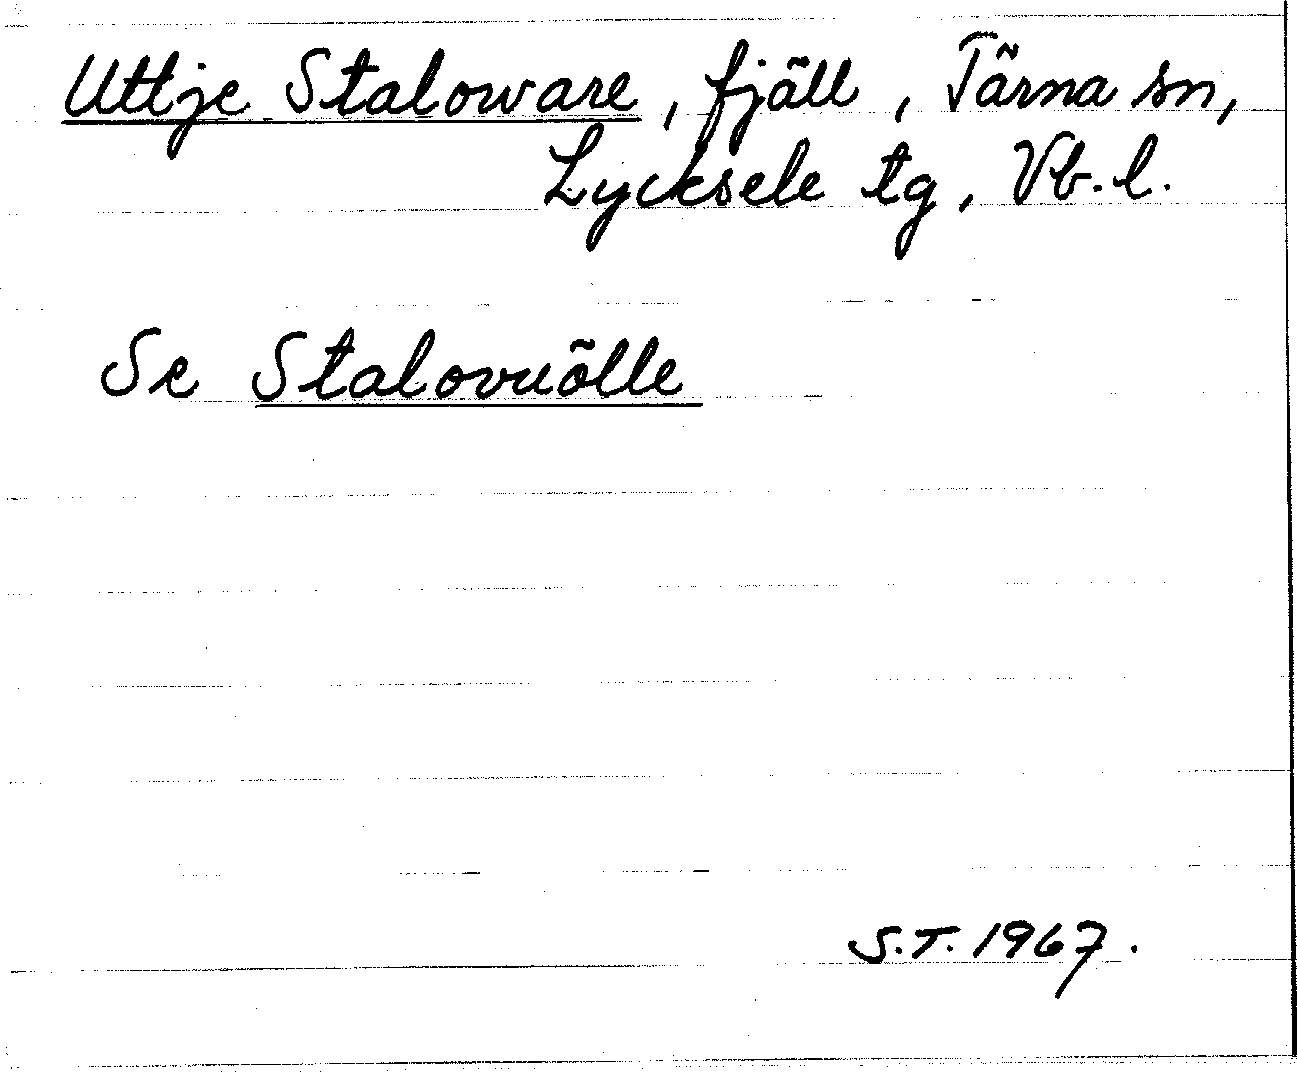 Uttje Staloware, fjäll, Tärna sn,
Lycksele tg, Vb. l.
Se Stalovuölle
S.T. 1967.